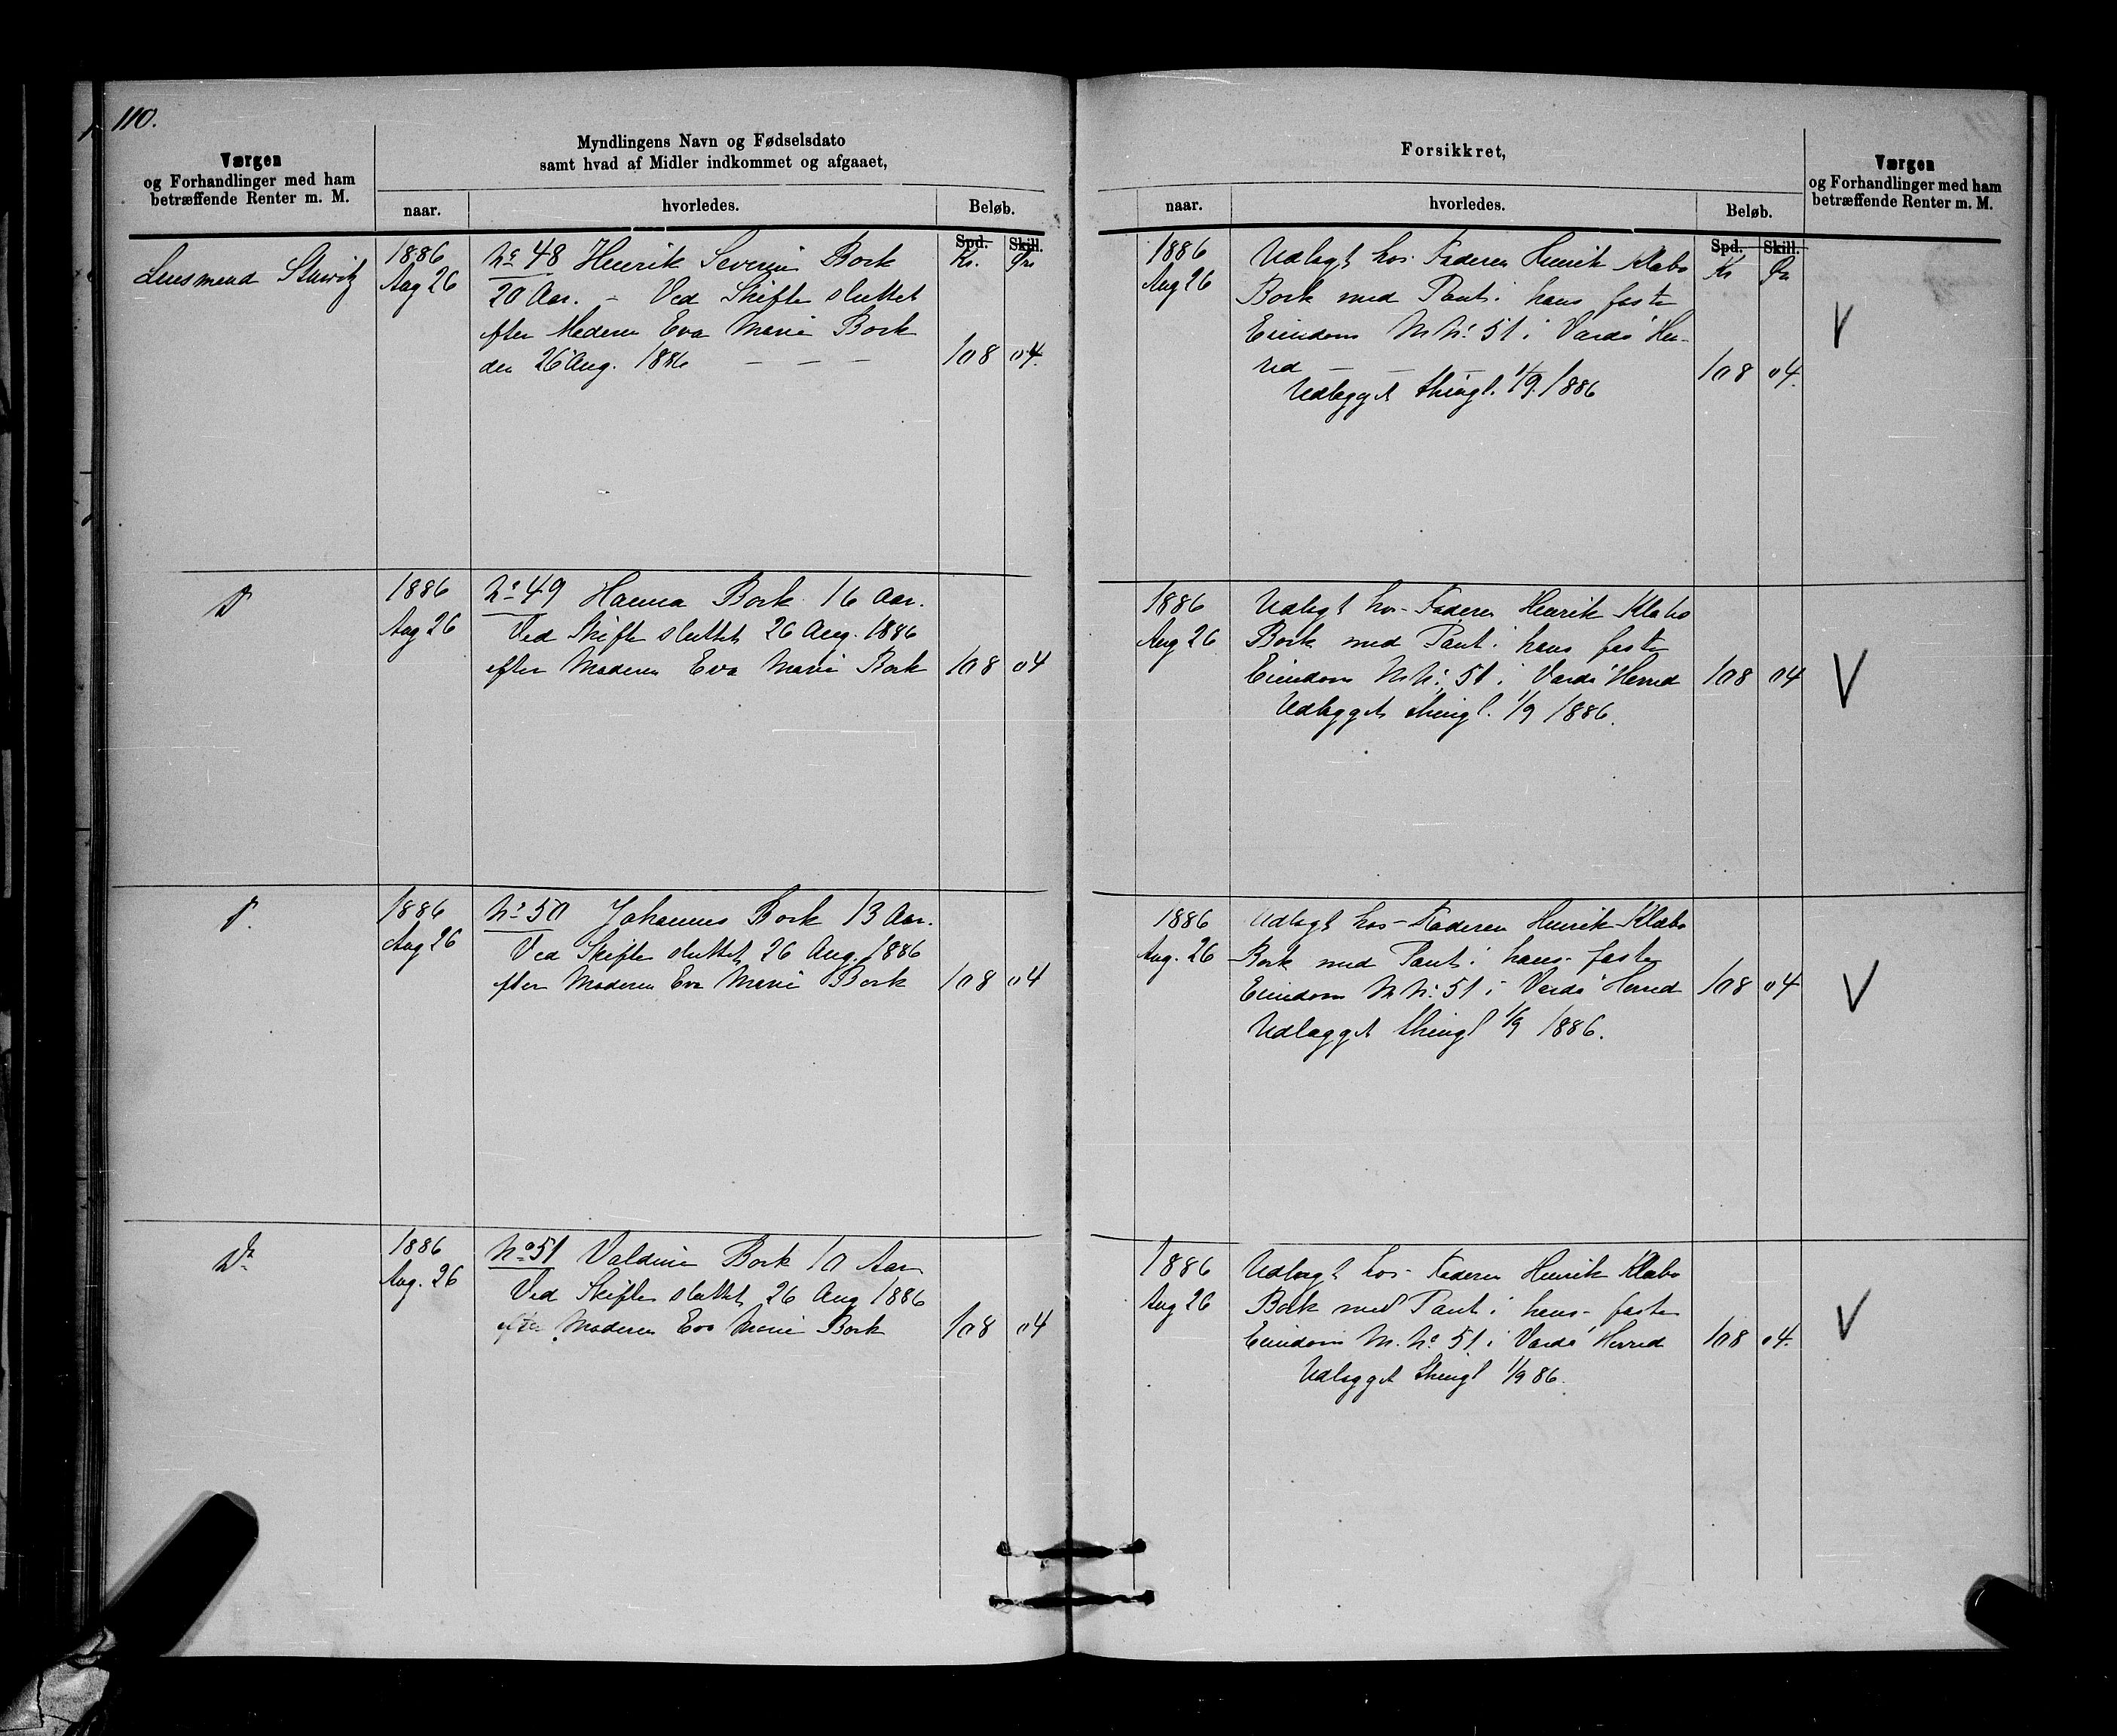 110.
Værgen
og Forhandlinger med ham
betræffende Renter m. M.
Myndlingens Navn og Fødselsdato
samt hvad af Midler indkommet og afgaaet,
naar.
hvorledes.
Beløb.
Spd. Skill.
Kr.
Lensmand
1886
Aug 26
No 48 Henrik Severin Bork
20 Aar. - Ved Skifte sluttet
efter Moderen Eva Marie Bork
den 26 Aug. 1886 - - -
108 04.
1886
Aug 26
No 49 Hanna Bork 16 Aar.
Ved Skifte sluttet 26 Aug. 1886
efter Moderen Eva Marie Bork
108 04
1886
Aug 26
No 50 Johannes Bork 13 Aar.
Ved Skifte sluttet 26 Aug. 1886
efter Moderen Eva Marie Bork
108 04
Do
1886
Aug. 26
No 51 Valdine Bork 10 Aar
Ved Skifte sluttet 26 Aug 1886
efter Moderen Eva Marie Bork
108 04
Forsikkret,
naar.
hvorledes.
Beløb.
Værgen
og Forhandlinger med ham
betræffende Renter m. M.
Spd. Skill.
Kr
1886
Aug 26
Udlagt hos Faderen Henrik Klæbo
Bork med Pant i hans faste
Eiendom M No 51 i Vardø Her-
red - - -
108 04.
Udlægget thingl. 1/9. 1886
V
1886
Aug 26
Udlagt hos Faderen Henrik Klæbo
Bork med Pant i hans faste
Eiendom M No 51 i Vardø Herred
108 04
Udlægget thingl. 1/9 1886.
V
1886
Aug. 26
Udlagt hos Faderen Henrik Klæbo
Bork med Pant i hans faste
Eiendom M No 51 i Vardø Herred
108 04
Udlægget thingl 1/9 1886.
V
1886
Aug 26
Udlagt hos Faderen Henrik Klæbo
Bork med Pant i hans faste
Eiendom M. No 51 i Vardø Herred
108 04.
Udlægget thingl 1/9 86.
V